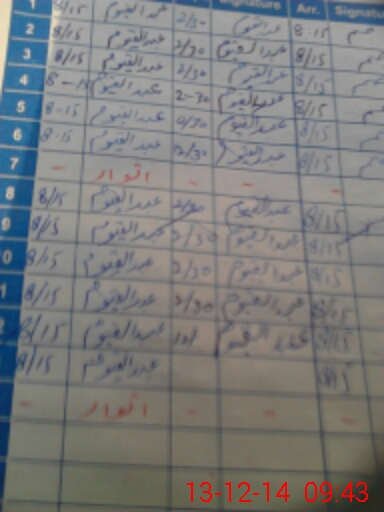 Signature Arr. Signatu
1 8/15 عبدالقیوم 2/30 عبدالقیوم 8-15
2 8/15 عبدالقیوم 2/30 عبدالقیوم 8/15
3 8/15 عبدالقیوم 2/30 عبدالقیوم 8/15
4 8-15 عبدالقیوم 2-30 عبدالقیوم 8/15
5 8-15 عبدالقیوم 2/30 عبدالقیوم 8/15
6 8-15 عبدالقیوم 2/30 عبدالقیوم 8/15
7 - اتوار - - -
8 8/15 عبدالقیوم 2/30 عبدالقیوم 8/15
9 8/15 عبدالقیوم 2/30 عبدالقیوم 8/15
0 8/15 عبدالقیوم 2/30 عبدالقیوم 8/15
1 8/15 عبدالقیوم 2/30 عبدالقیوم 8/15
2 8/15 عبدالقیوم 12/ عبدالقیوم 8/15
8/15 عبدالقیوم 8/15
- اتوار - - -
13-12-14 09:43